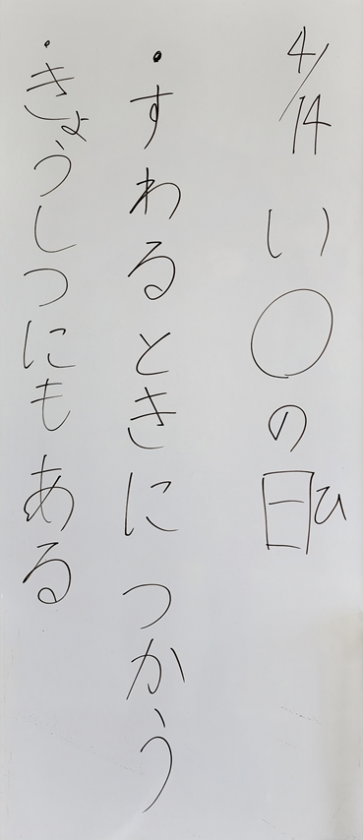 4/14 い○の日ひ
・すわるときにつかう
・きょうしつにもある